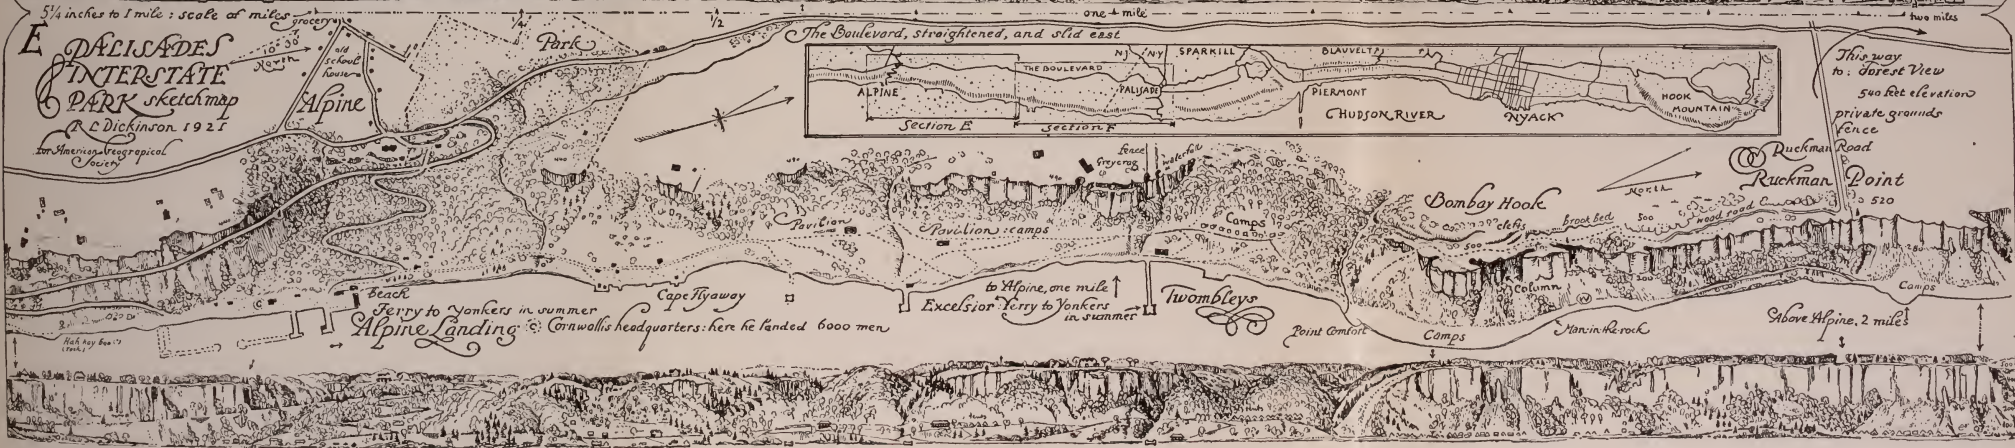 5¼ inches to 1 mile : scale of miles
1/4
1/2
one mile
two miles
E
PALISADES
INTERSTATE
PARK sketchmap
R L Dickinson 1921
for American Geograpical
Society
North
grocery
old
school
house
Alpine
Park
The Boulevard, straightened, and slid east
NJ
NY
SPARKILL
BLAUVELT
THE BOULEVARD
ALPINE
PALISADE
PIERMONT
HUDSON RIVER
NYACK
HOOK
MOUNTAIN
Section E
Section F
This way
to: Forest View
540 feet elevation
private grounds
fence
Ruckman Road
Ruckman Point
520
North
fence
Greycrag
waterfall
Bombay Hook
clefts
brook bed
500
wood road
500
Pavilion
Pavilion : camps
Camps
Column
Camps
beach
Ferry to Yonkers in summer
Alpine Landing
C Cornwollis headquarters: here he landed 6000 men
Cape Flyaway
to Alpine, one mile
Excelsior Ferry to Yonkers
in summer
Twombleys
Point Comfort
Camps
Man-in-the-rock
Above Alpine, 2 miles